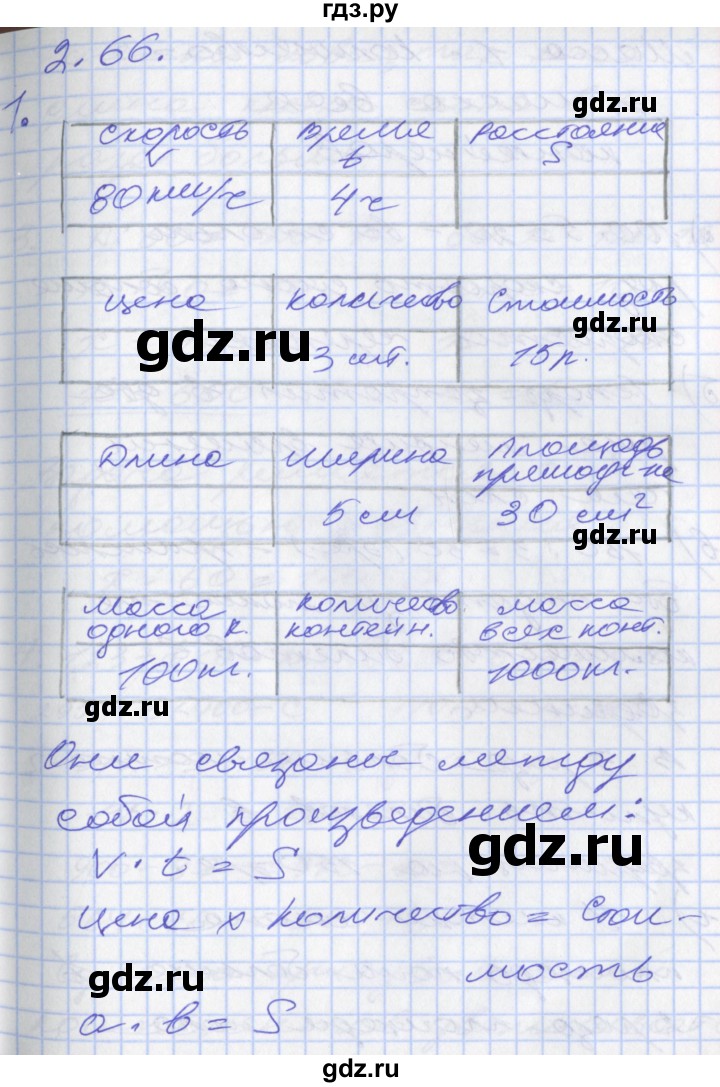 гдз.ру
2.66.
gdz.ru
1.
Скорость Время Расстояние
V t S
80 км/ч 4ч
Цена Количество Стоимость
gdz.ru
gdz.ru
3 шт. 15р.
Длина Ширина Площадь
прямоуг-ка
5 см 30 см²
gdz.ru
Масса Количество Масса
одного к. контейн. всех конт.
100кг. 1000кг.
gdz.ru
Они связаны между
собой произведением:
gdz.ru
V · t = S
Цена х Количество = Стои-
мость
gdz.ru
a · в = S
gdz.ru